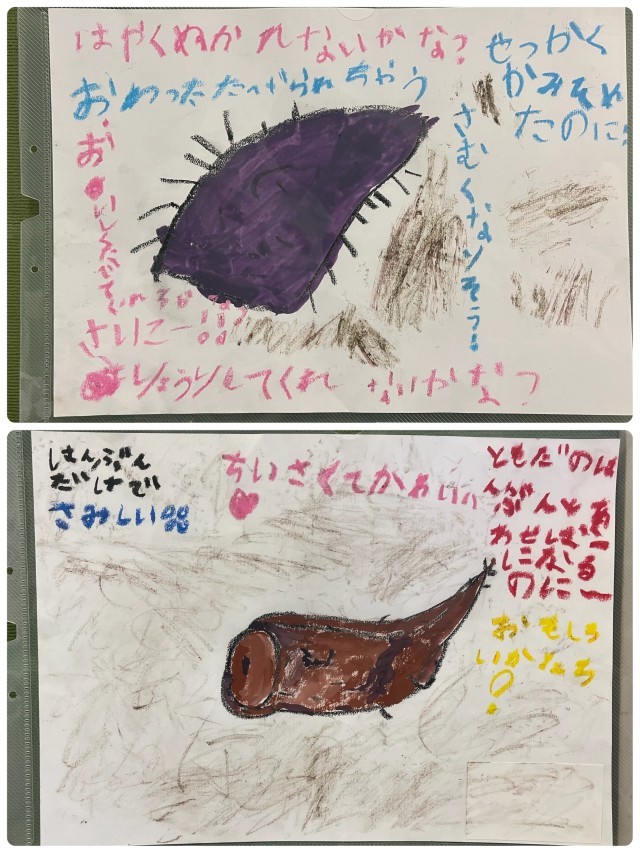 はやくぬかれないかな?
せっかく
かみそれ
たのに!
おわったたべられちゃう
さむくなりそう!
さいこー!!
りょうりしてくれないかな?
はんぶん
だけで
さみしい
ちいさくてかわいい
ともだちのは
んぶんとあ
わせれば一
になる
のにー
おもしろ
いかたち
!